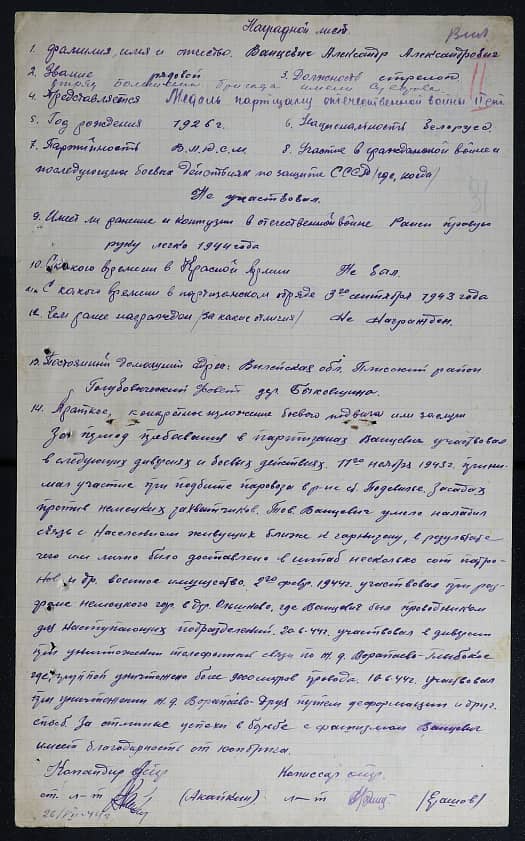 Наградной лист.
1. Фамилия, имя и отчество. Ванцевич Александр Александрович
2. Звание рядовой 3. Должность стрелок
отряд Большевик бригада имени Суворова.
4. Представляется Медаль партизану отечественной войны II ст.
5. Год рождения 1926 г. 6. Национальность Белорусс.
7. Партийность В.Л.К.С.М. 8. Участие в гражданской войне и
последующих боевых действиях по защите СССР /где, когда/
Не участвовал.
9. Имеет ли ранение и контузии в отечественной войне Ранен правую
руку легко 1944 года
10. С какого времени в Красной Армии Не был.
11. С какого времени в партизанском отряде 3го сентября 1943 года
12. Чем ранее награжден /за какие отличия/ Не Награжден.
13. Постоянный домашний адрес: Вилейская обл. Плисский район
Голубовический совет дер. Быковщина.
14. Краткое, конкретное изложение боевого подвига или заслуги
За период пребывания в партизанах Ванцевич участвовал
в следующих диверсиях и боевых действиях. 11го ноября 1943 г. прини-
мал участие при подбитии паровоза в р-не ст. Подсвилье. Засадах
против немецких захватчиков. Тов. Ванцевич умело наладил
связь с населением живущих ближе к гарнизону, в результате
чего им лично было доставлено в штаб несколько сот патро-
нов и др. военное имущество. 2го февр. 1944 г. участвовал при раз-
громе немецкого гар. в дер. где Ванцевич был проводником
для наступающих подразделений. 20.6.44 г. участвовал в диверсии
при уничтожении телефонной связи по ж.д. Воропаево-Глыбокое
где группой уничтожено более километров провода. 10.6.44 г. участвовал
при уничтожении ж.д. Воропаево-Друя путем деформации и друг.
способ. За отличные успехи в борьбе с фашизмом Ванцевич
имеет благодарность от комбрига.
Командир отр. Комиссар отр.
ст. л-т (Акайкин) л-т (Ершов)